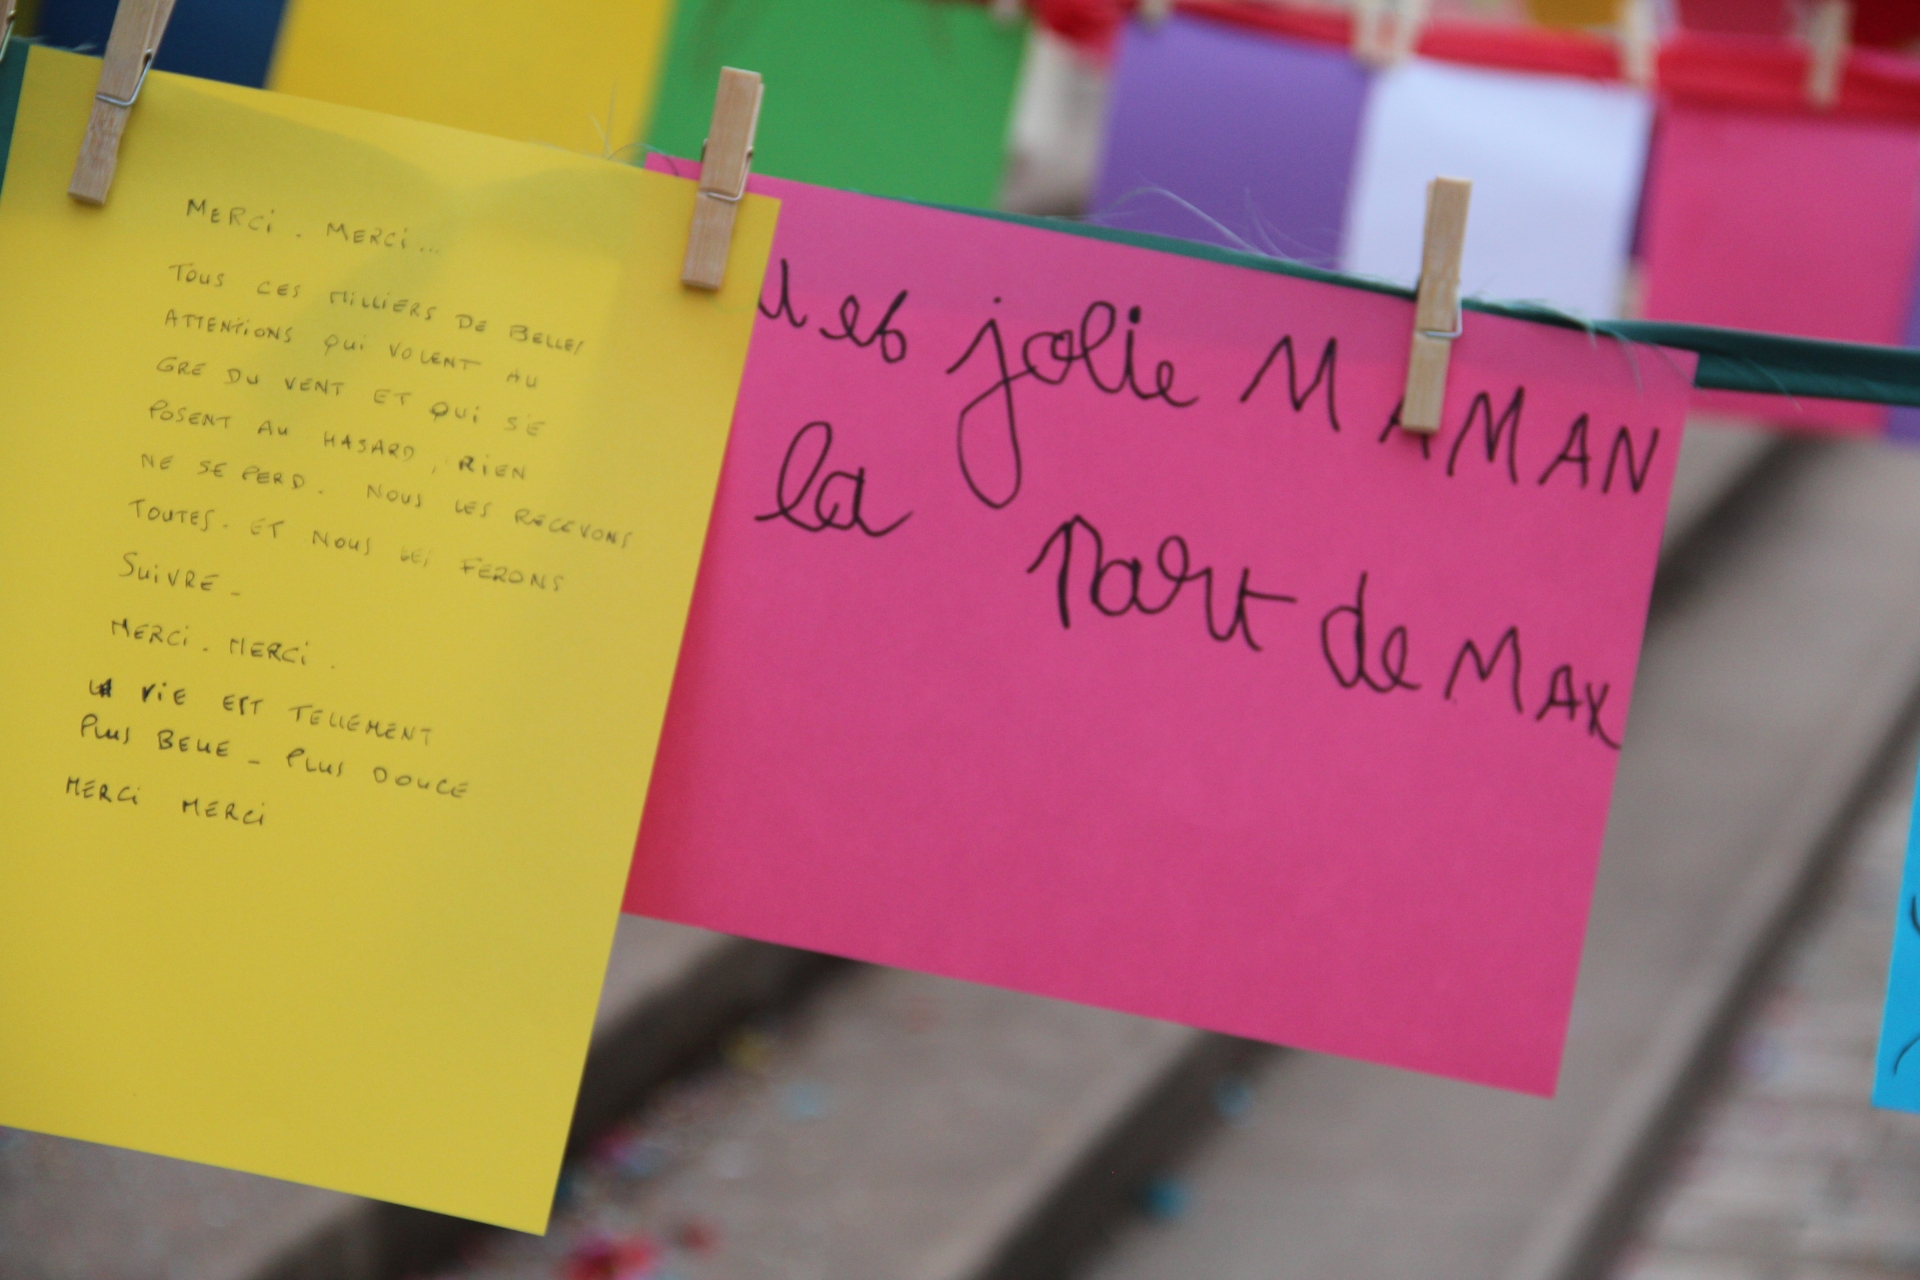 MERCi . MERCi...
TOUS CES MILLIERS DE BELLES
ATTENTIONS QUI VOLENT AU
GRE DU VENT ET QUI SE
POSENT AU HASARD, RIEN
NE SE PERD. NOUS LES RECEVONS
TOUTES. ET NOUS LES FERONS
SUIVRE _
MERCi . MERCi .
LA ViE EST TELLEMENT
PLUS BELLE _ PLUS DOUCE
MERCi MERCi
u es jolie MAMAN
la part de MAX